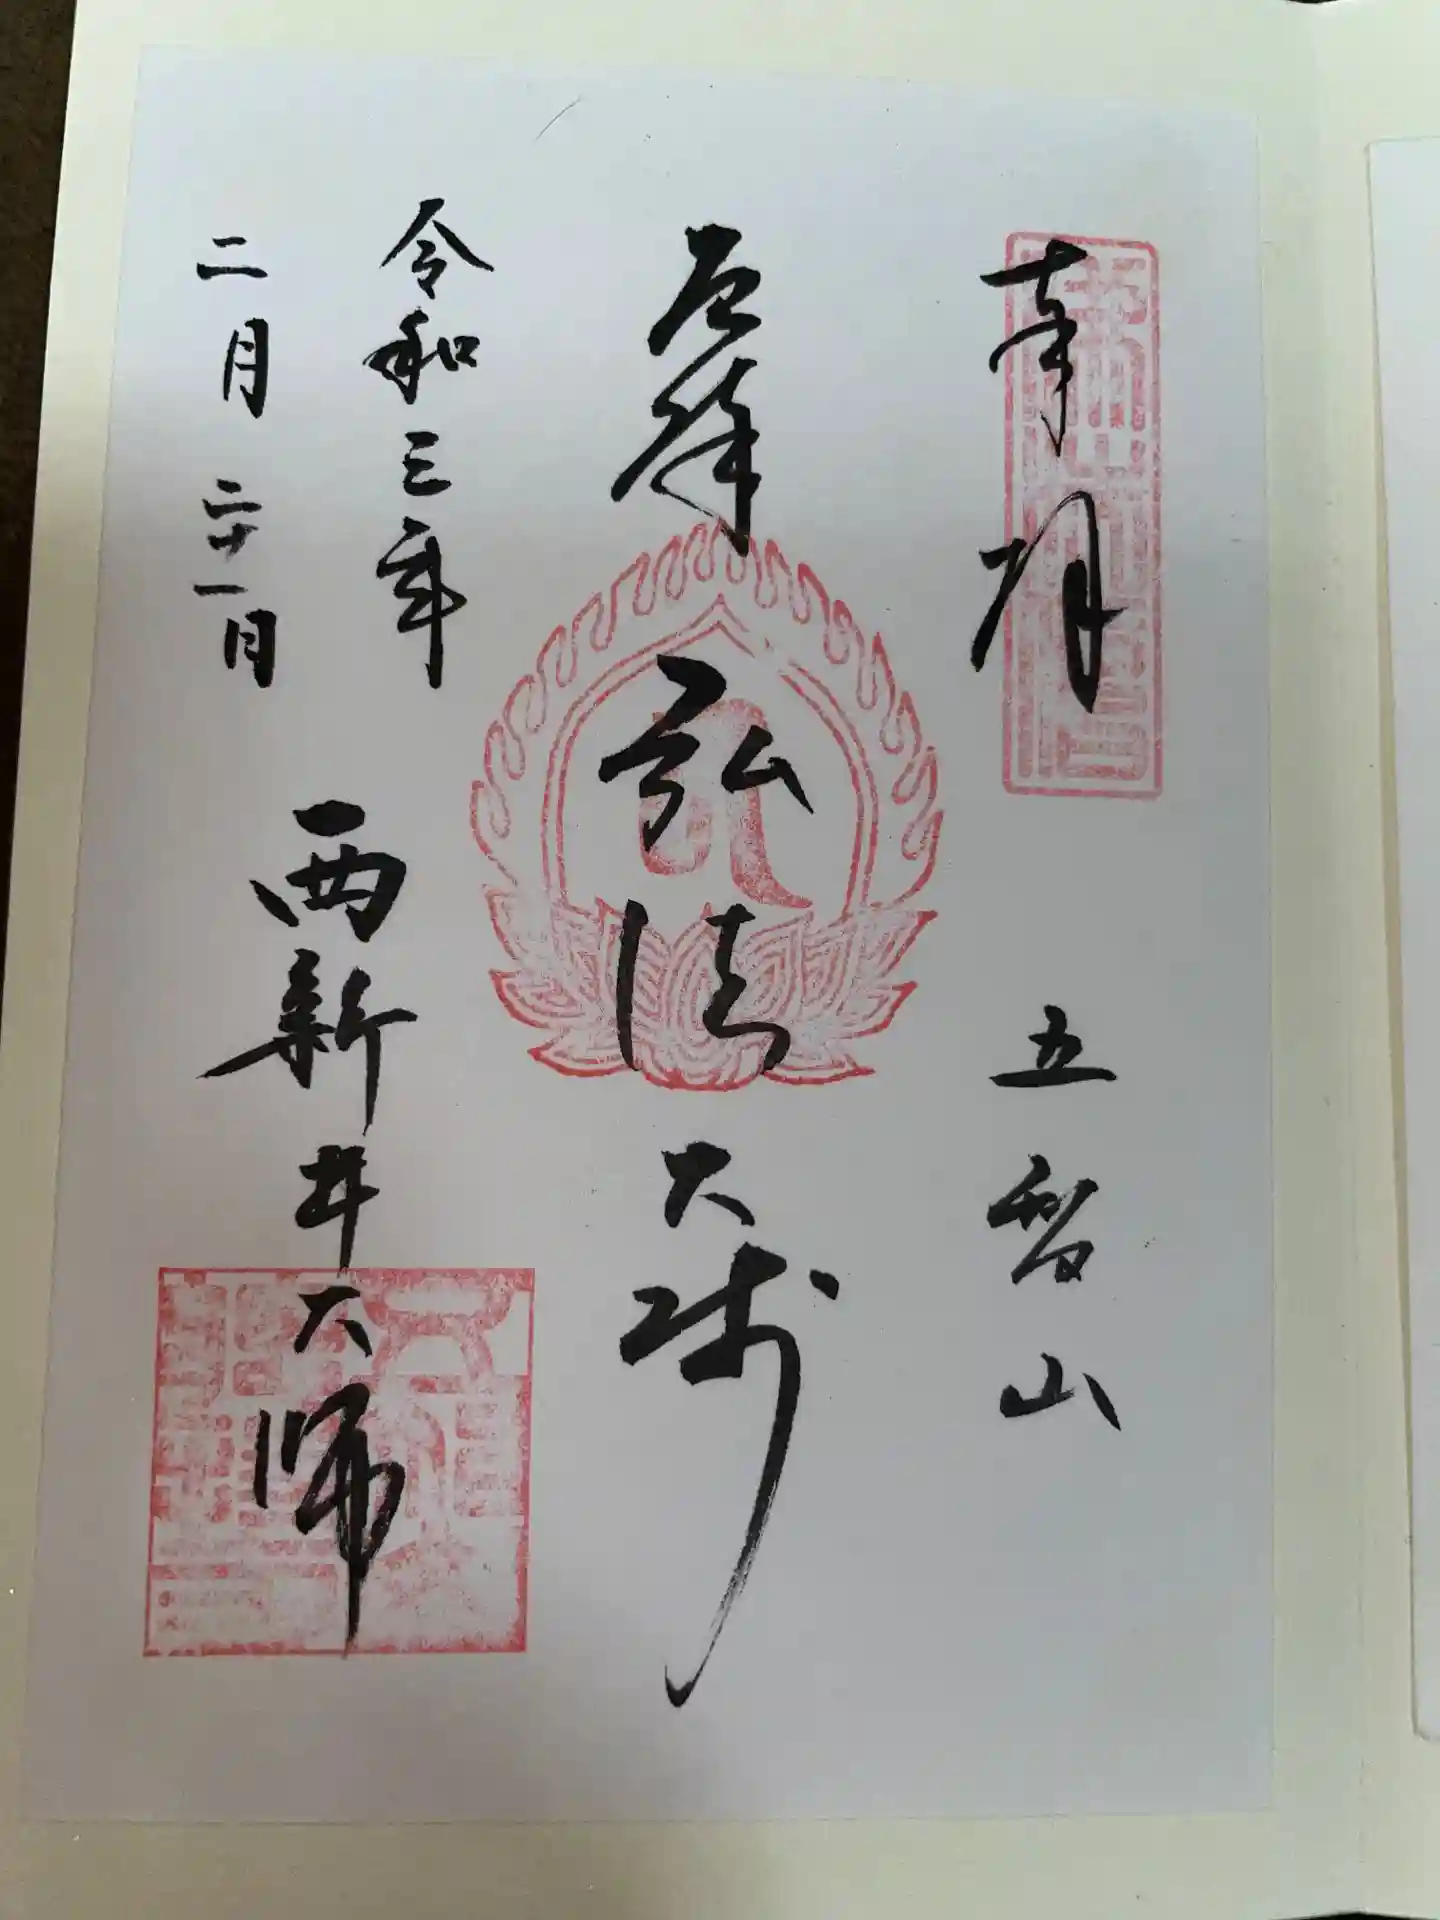 奉拝
五智山
厄除
弘法大師
令和三年
二月二十一日
西新井大師